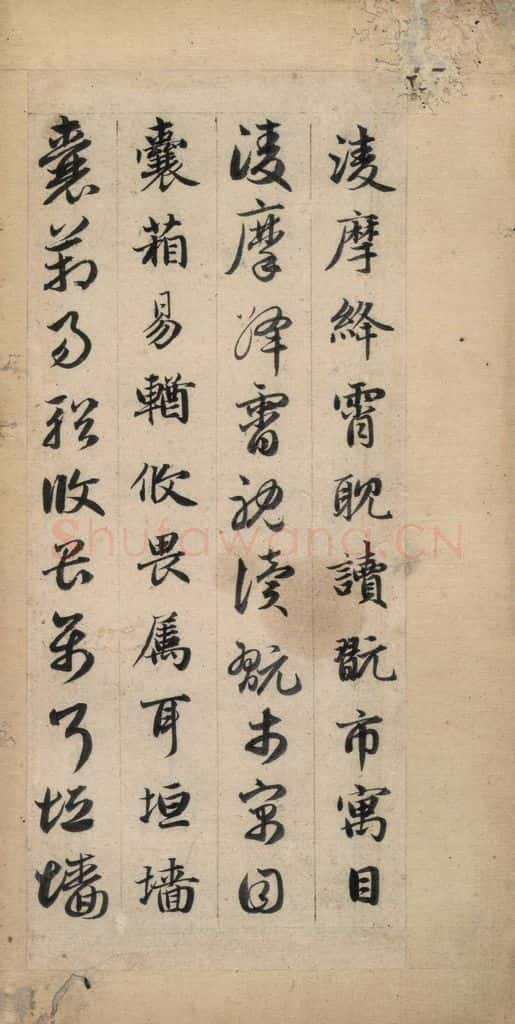 淩摩絳霄耽讀翫市寓目
淩摩絳霄耽讀翫市寓目
囊葙易輶攸畏属耳垣墻
囊葙易輶攸畏属耳垣墻
Shufawang.CN